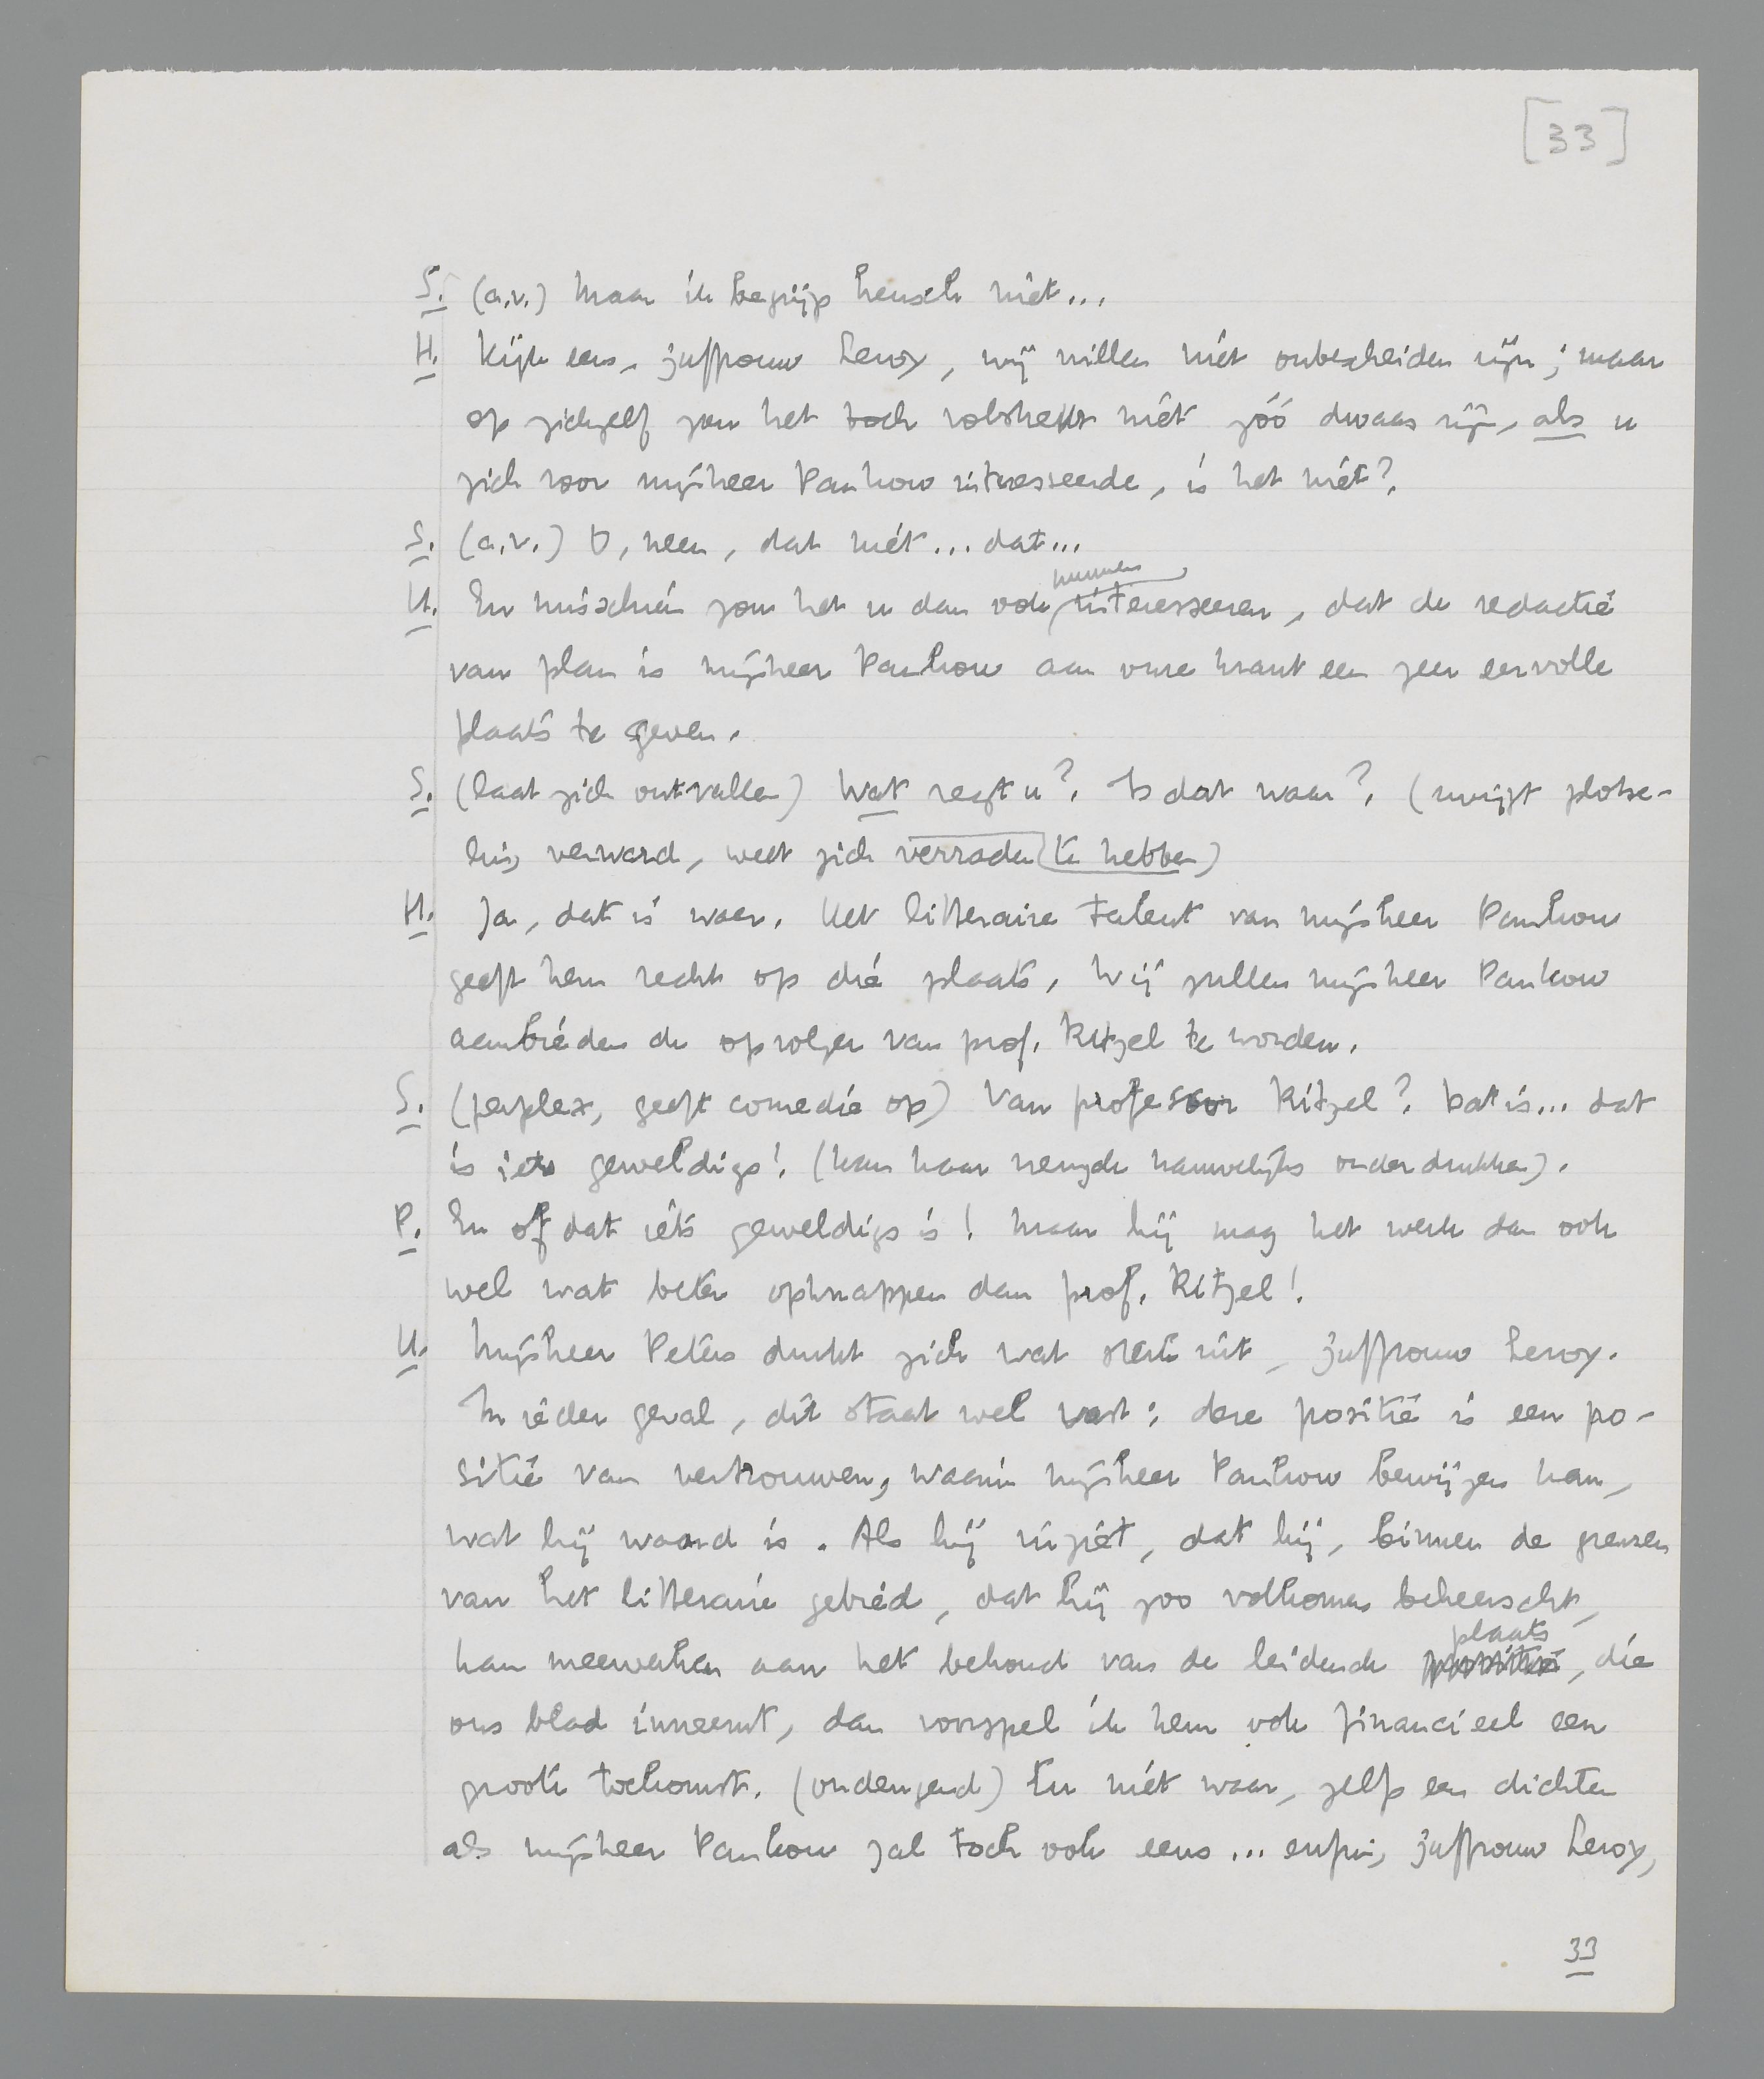 [33]
S. (a.v.) Maar ik begrijp heusch niet...
H. Kijk eens, juffrouw Leroy, wij willen niet onbescheiden zijn; maar
op zichzelf zou het toch volstrekt niet zóó dwaas zijn, als u
zich voor mijnheer Pankow interesseerde, is het niet?
S. (a.v.) O, neen, dat niet... dat...
H. En misschien zou het u dan ook kunnen interesseeren, dat de redactie
van plan is mijnheer Pankow aan onze krant een zeer eervolle
plaats te geven.
S. (laat zich ontvallen) Wat zegt u? Is dat waar? (zwijgt plotse-
ling verward, weet zich verraden te hebben)
H. Ja, dat is waar. Het litteraire talent van mijnheer Pankow
geeft hem recht op die plaats. Wij zullen mijnheer Pankow
aanbieden de opvolger van prof. Ritzel te worden.
S. (perplex, geeft comedie op) Van professor Ritzel? Dat is... dat
is iets geweldigs! (kan haar vreugde nauwelijks onderdrukken).
P. En of dat iets geweldigs is! Maar hij mag het werk dan ook
wel wat beter opknappen dan prof. Ritzel!
H. Mijnheer Peters drukt zich wat sterk uit, juffrouw Leroy.
In ieder geval, dit staat wel vast: deze positie is een po-
sitie van vertrouwen, waarin mijnheer Pankow bewijzen kan,
wat hij waard is. Als hij inziet, dat hij, binnen de grenzen
van het litteraire gebied, dat hij zoo volkomen beheerscht,
kan meewerken aan het behoud van de leidende plaats, die
ons blad inneemt, dan voorspel ik hem ook financieel een
groote toekomst. (ondeugend) En niet waar, zelfs een dichter
als mijnheer Pankow zal toch ook eens... enfin, juffrouw Leroy,
33